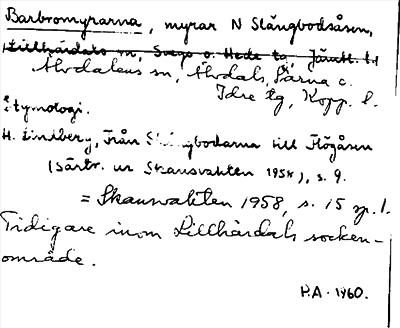 Barbromyrarna, myrar N Slängbodsåsen,
Lillhärdals sn, Svegs o. Hede tg, Jämtl. l.
Älvdalens sn, Älvdals, Särna o.
Idre tg, Kopp. l.
Etymologi.
H. Lindberg, Från Slängbodarna till Flögåsen
(Särtr. ur Skansvakten 1958), s. 9.
= Skansvakten 1958, s. 15 sp. 1.
Tidigare inom Lillhärdals socken-
område.
P.A. 1960.